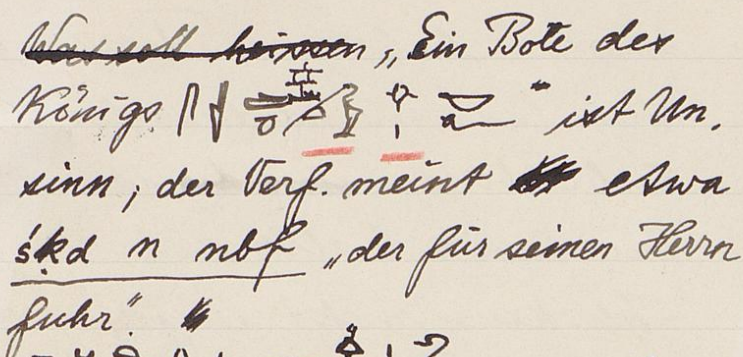 Was soll heissen „Ein Bote des
Königs " ist Un.
sinn, der Verf. meint etwa
śḳd n nbf „der für seinen Herrn
fuhr".